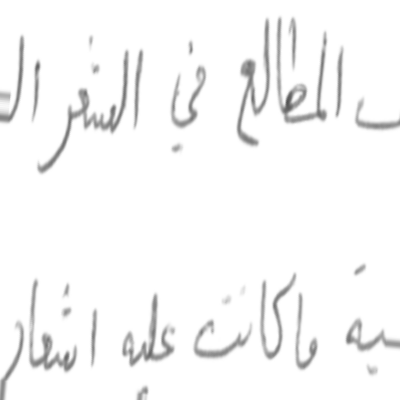 المطالع في الشعر
ما كانت عليه اشعار